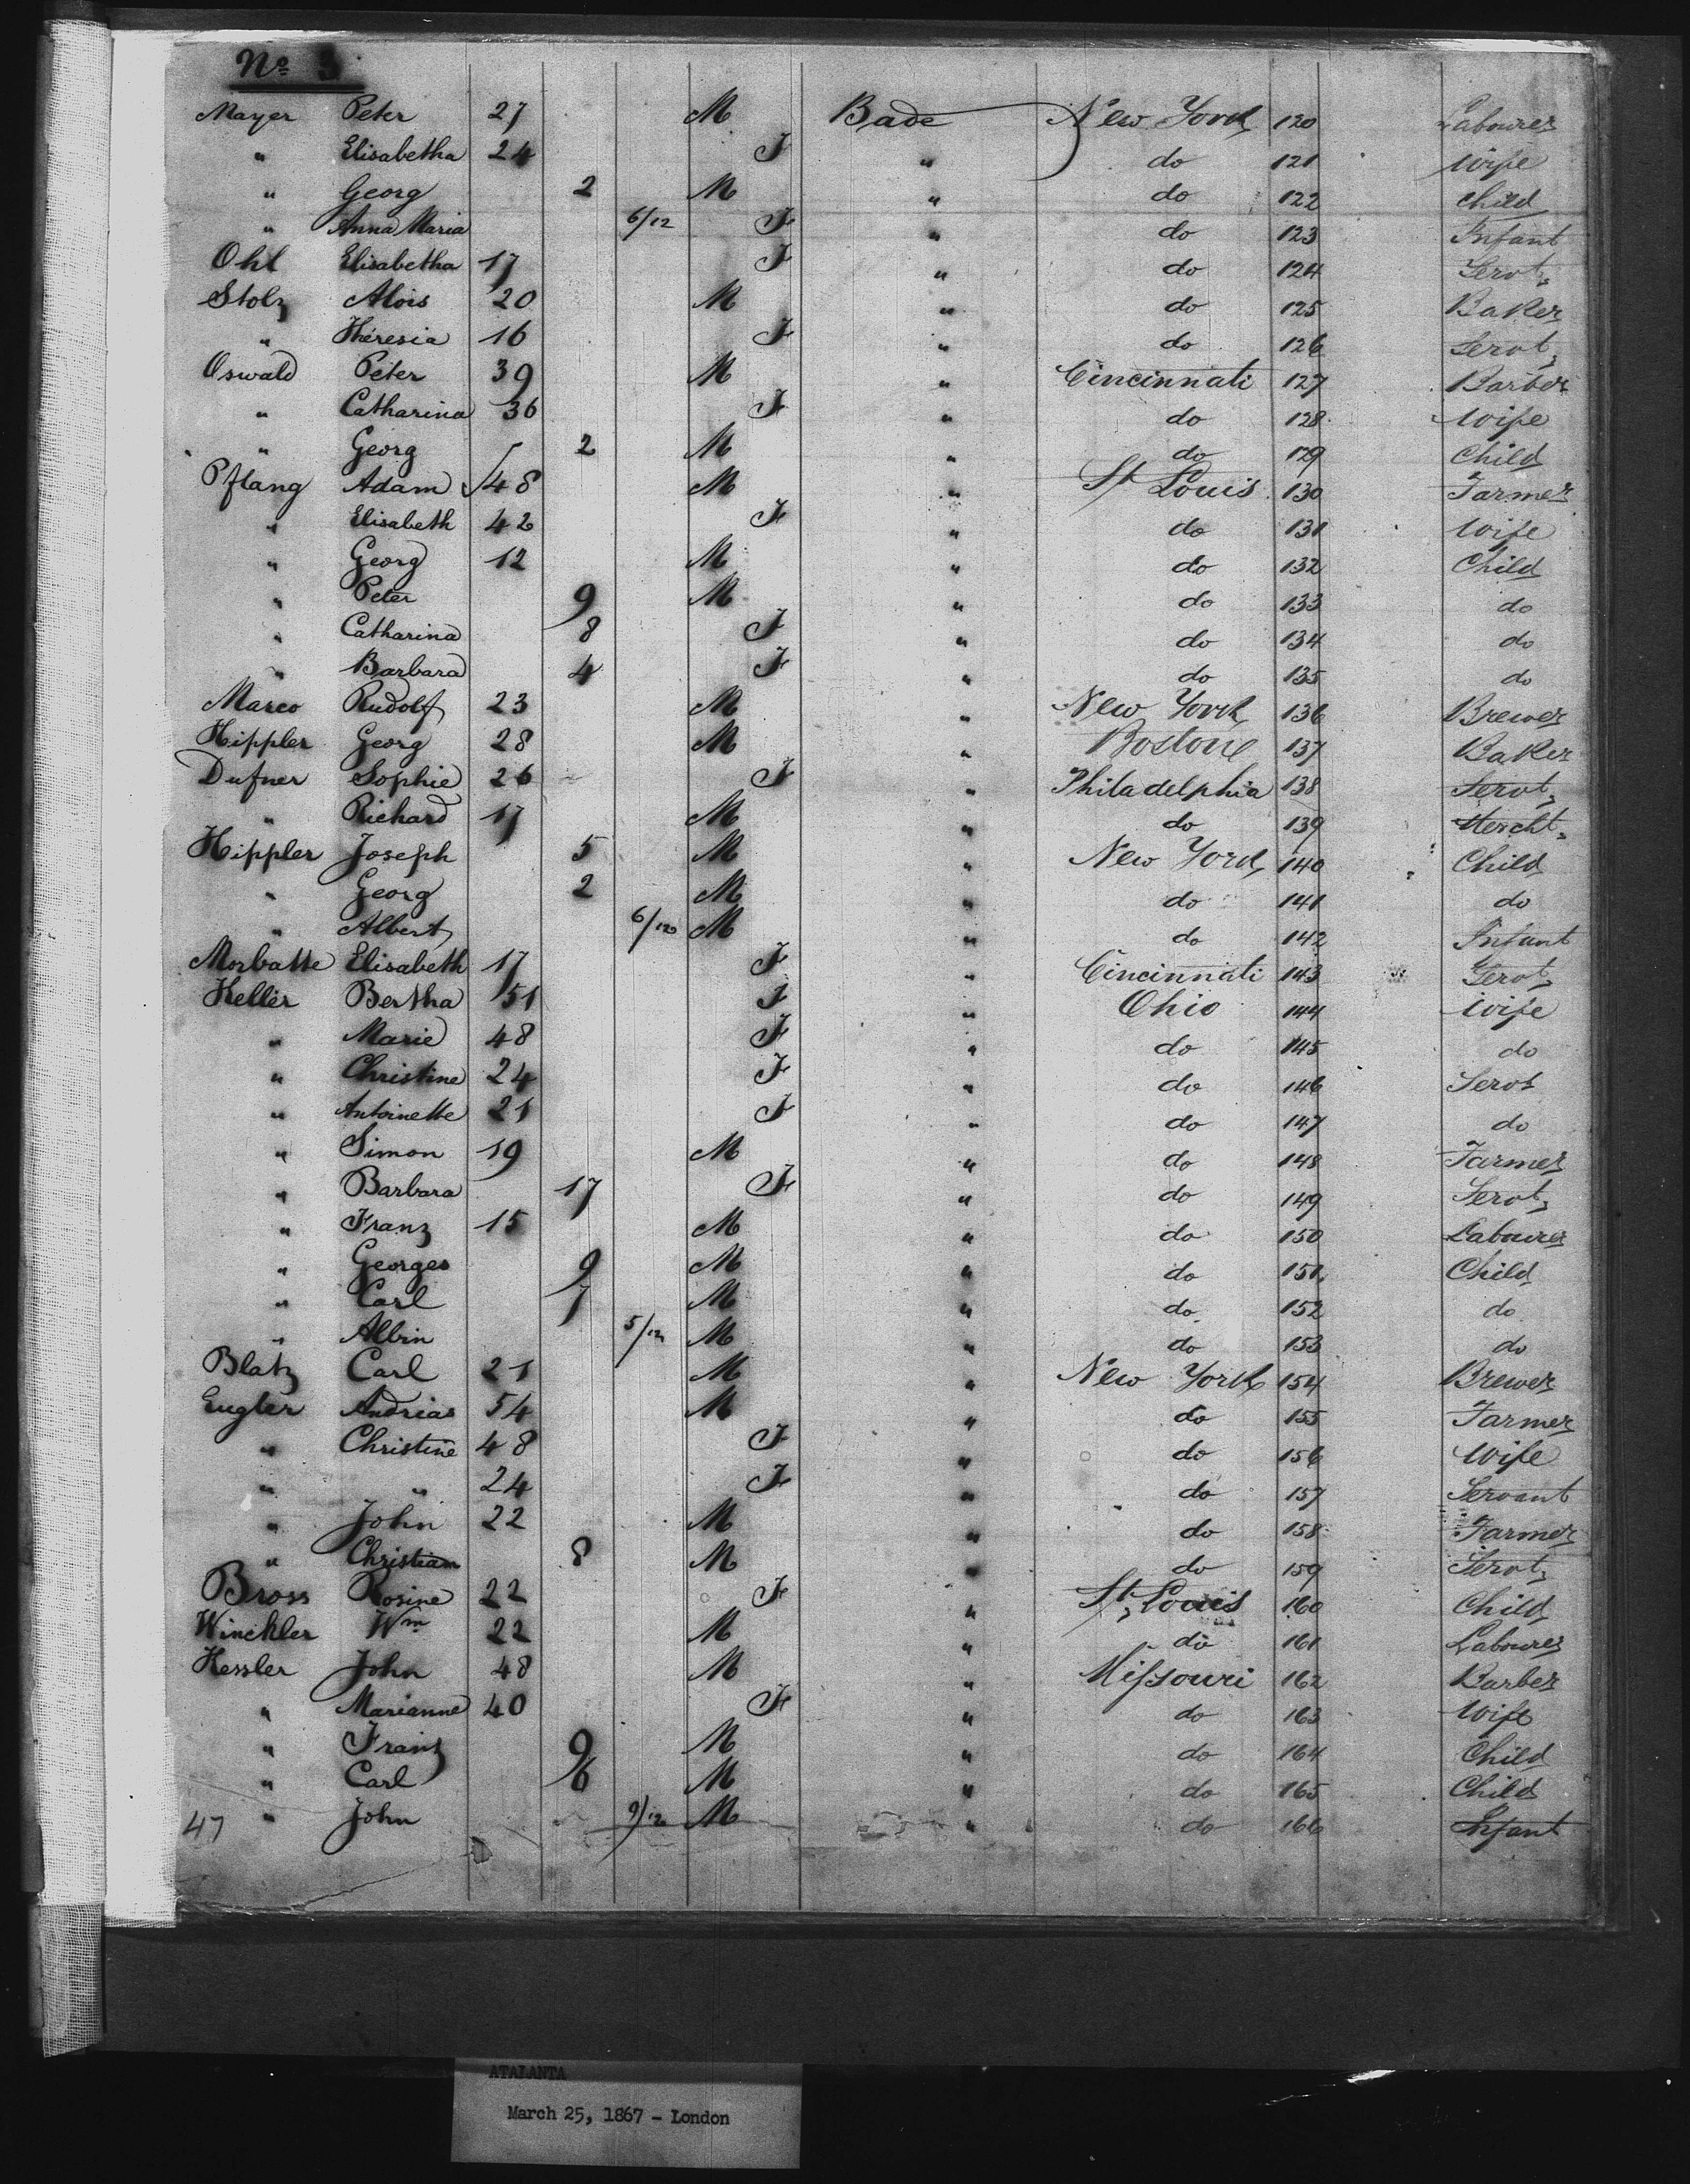 No 3
Mayer Peter 27 M Bade New York 120 Labourer
" Elisabetha 24 F " do 121 Wife
" Georg 2 M " do 122 Child
" Anna Maria 6/12 F " do 123 Infant
Ohl Elisabetha 17 F " do 124 Servt
Stolz Alois 20 M " do 125 Baker
" Théresia 16 F " do 126 Servt
Oswald Péter 39 M " Cincinnati 127 Barber
" Catharina 36 F " do 128 Wife
" Georg 2 M " do 129 Child
Pflang Adam 48 M " St Louis 130 Farmer
" Elisabeth 42 F " do 131 Wife
" Georg 12 M " do 132 Child
" Peter 9 M " do 133 do
" Catharina 8 F " do 134 do
" Barbara 4 F " do 135 do
Marco Rudolf 23 M " New York 136 Brewer
Hippler Georg 28 M " Boston 137 Baker
Dufner Sophie 26 F " Philadelphia 138 Servt
" Richard 17 M " do 139 Mercht
Hippler Joseph 5 M " New York 140 Child
" Georg 2 M " do 141 do
" Albert 6/12 M " do 142 Infant
Morbatte Elisabeth 17 F " Cincinnati 143 Servt
Keller Bertha 51 F " Ohio 144 Wife
" Marie 48 F " do 145 do
" Christine 24 F " do 146 Servt
" Antoinette 21 F " do 147 do
" Simon 19 M " do 148 Farmer
" Barbara 17 F " do 149 Servt
" Franz 15 M " do 150 Labourer
" Georges 9 M " do 151 Child
" Carl 7 M " do 152 do
" Albin 5/12 M " do 153 do
Blatz Carl 21 M " New York 154 Brewer
Eugler Andrias 54 M " do 155 Farmer
" Christine 48 F " do 156 Wife
" " 24 F " do 157 Servant
" John 22 M " do 158 Farmer
" Christian 8 M " do 159 Servt
Bross Rosine 22 F " St Louis 160 Child
Winckler Wm 22 M " do 161 Labourer
Kessler John 48 M " Missouri 162 Barber
" Marianne 40 F " do 163 Wife
" Franz 9 M " do 164 Child
" Carl 6 M " do 165 Child
47 " John 9/12 M " do 166 Infant
ATALANTA
March 25, 1867 - London